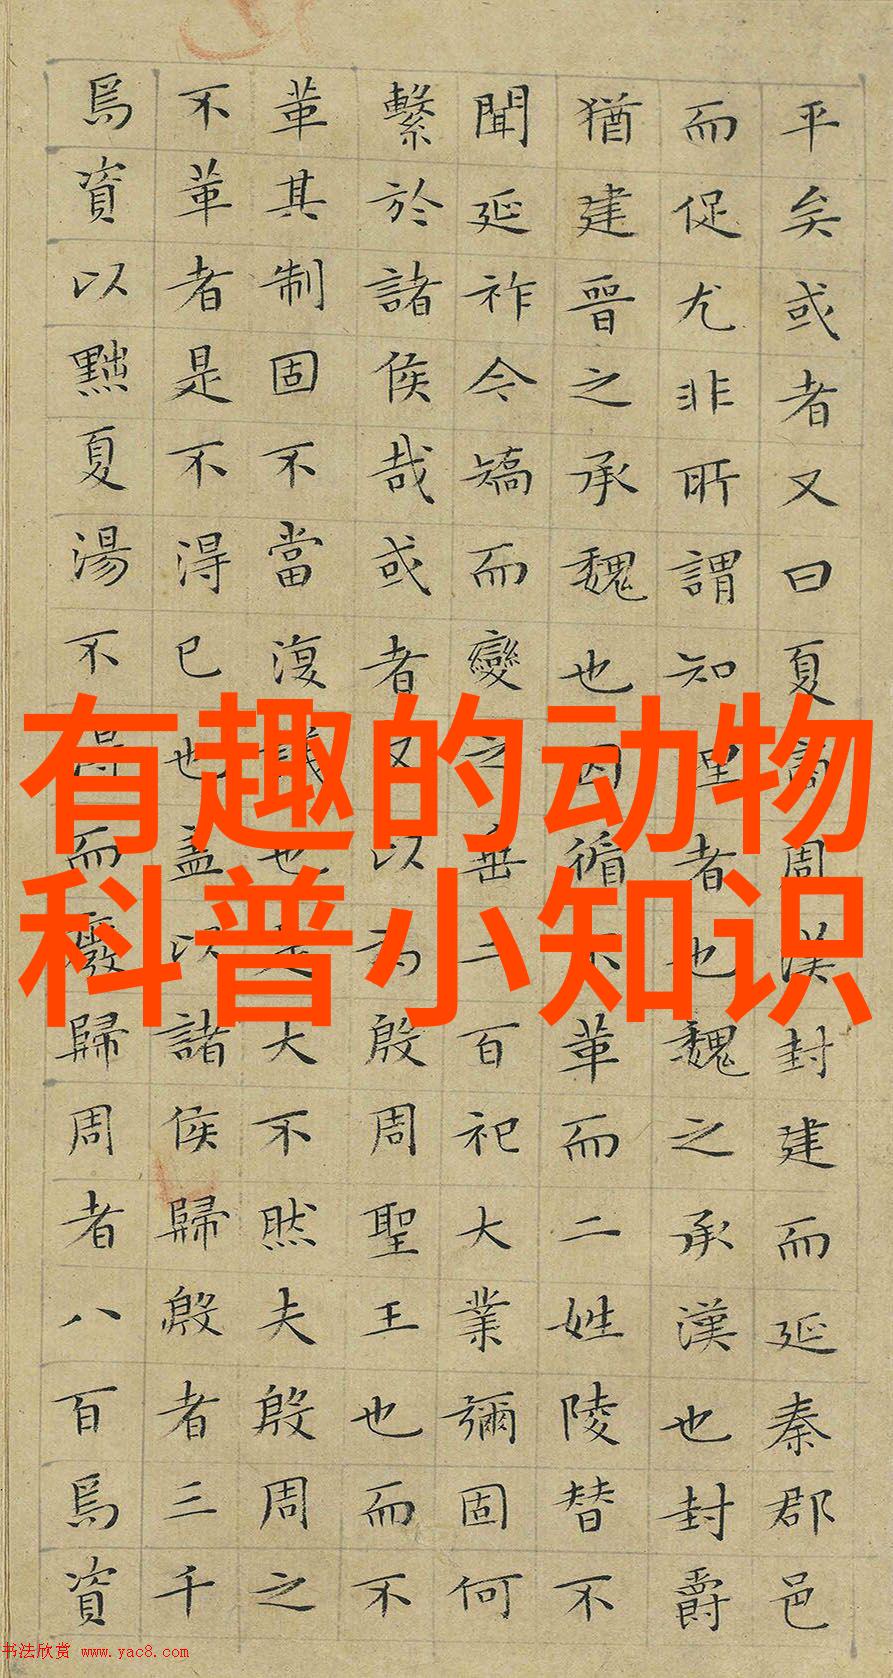 平矣或者又曰夏商周漢封建而延秦郡邑
而促尤非所謂知理者也魏之承漢也封爵
猶建晉之承魏也因循不革而二姓陵替不
聞延祚今矯而變之垂二百祀大業彌固何
繫於諸侯哉或者又以為殷周聖王也而不
革其制固不當復議也是大不然夫殷周之
不革者是不得已也蓋以諸侯歸殷者三千
焉資以黜夏湯不得而廢歸周者八百焉資
有趣的动物
科普小知识
书法欣赏 www.yac8.com